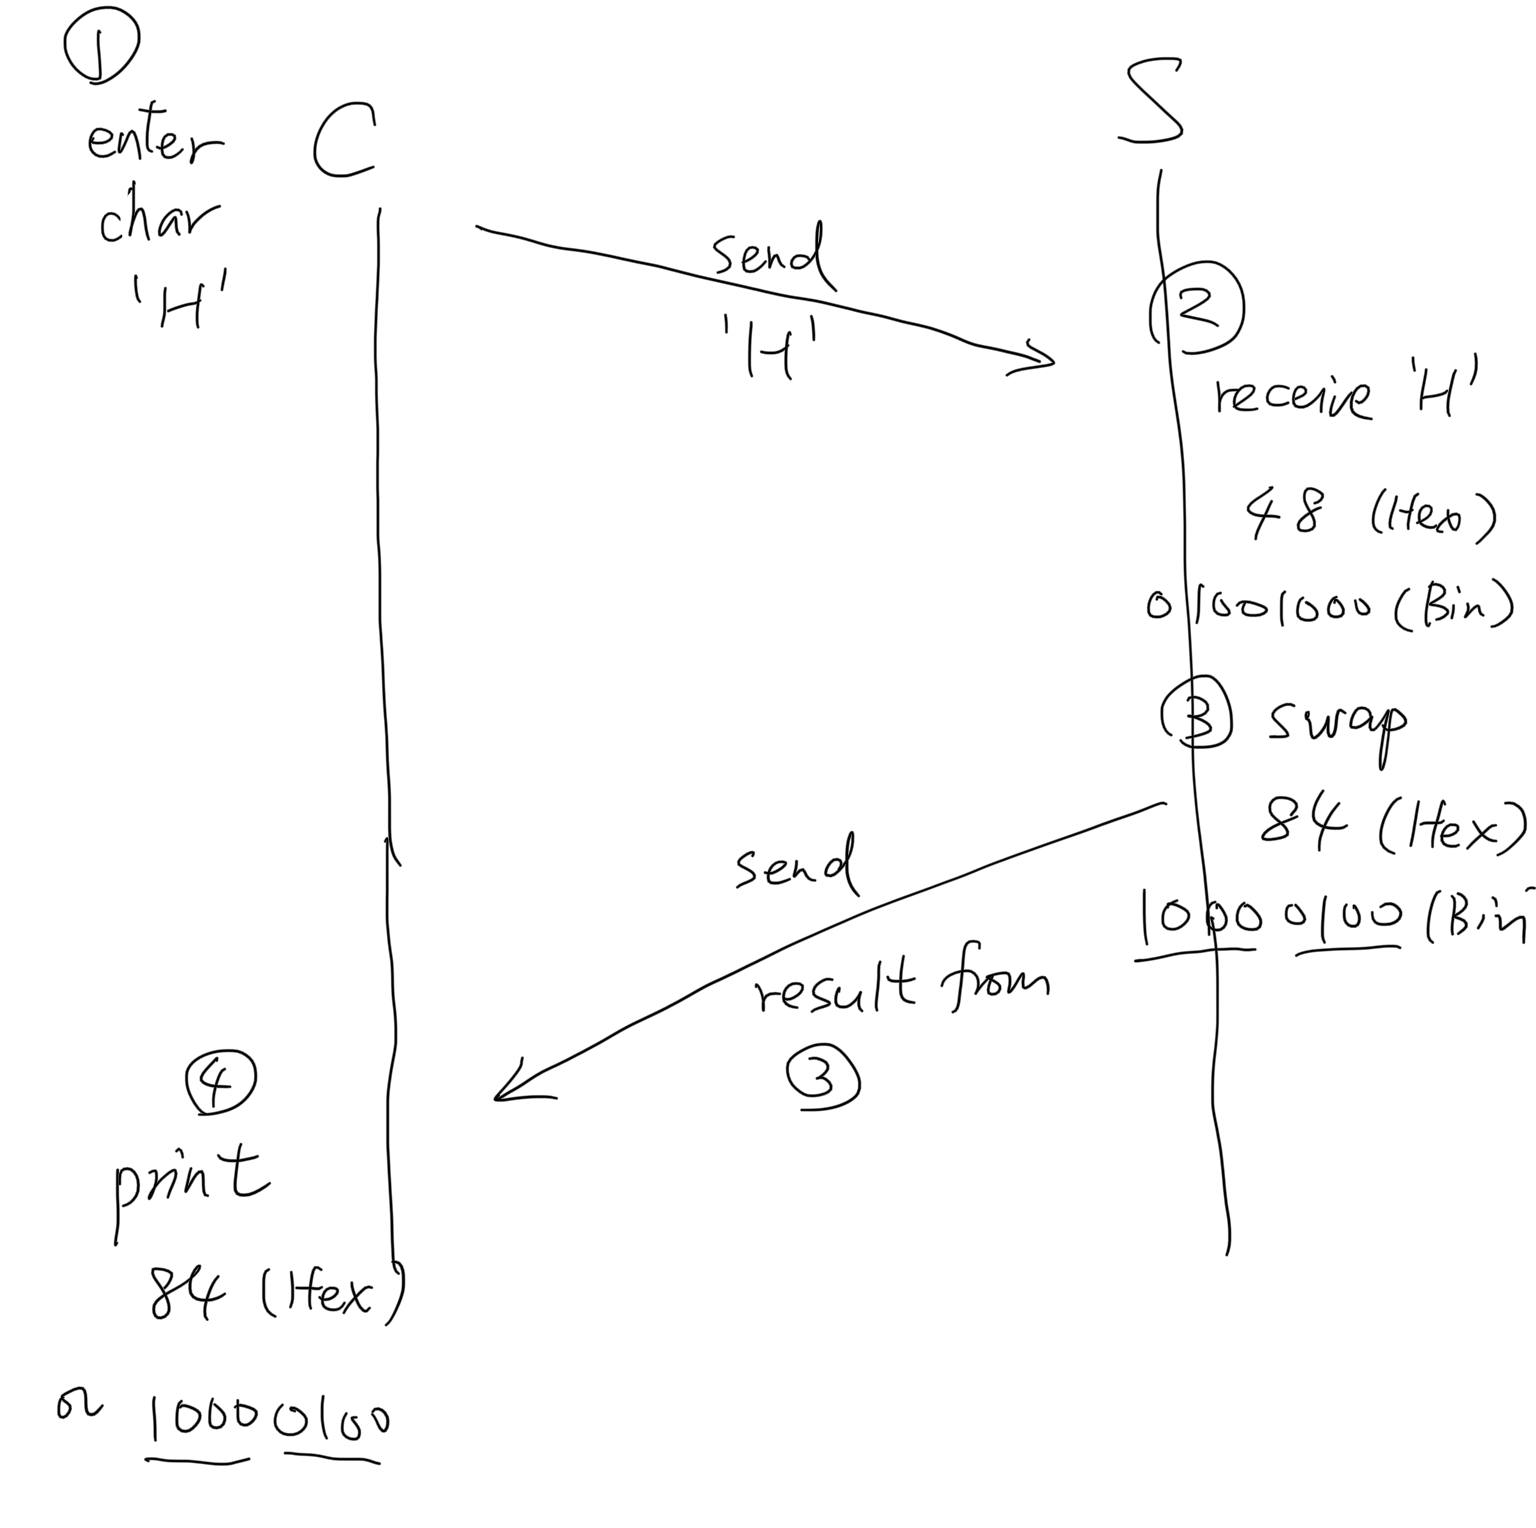 ①
enter
char
'H'
C
S
send
'H'
②
receive 'H'
48 (Hex)
01001000 (Bin)
③ swap
84 (Hex)
1000 0100 (Bin
send
result from
③
④
print
84 (Hex)
or 1000 0100